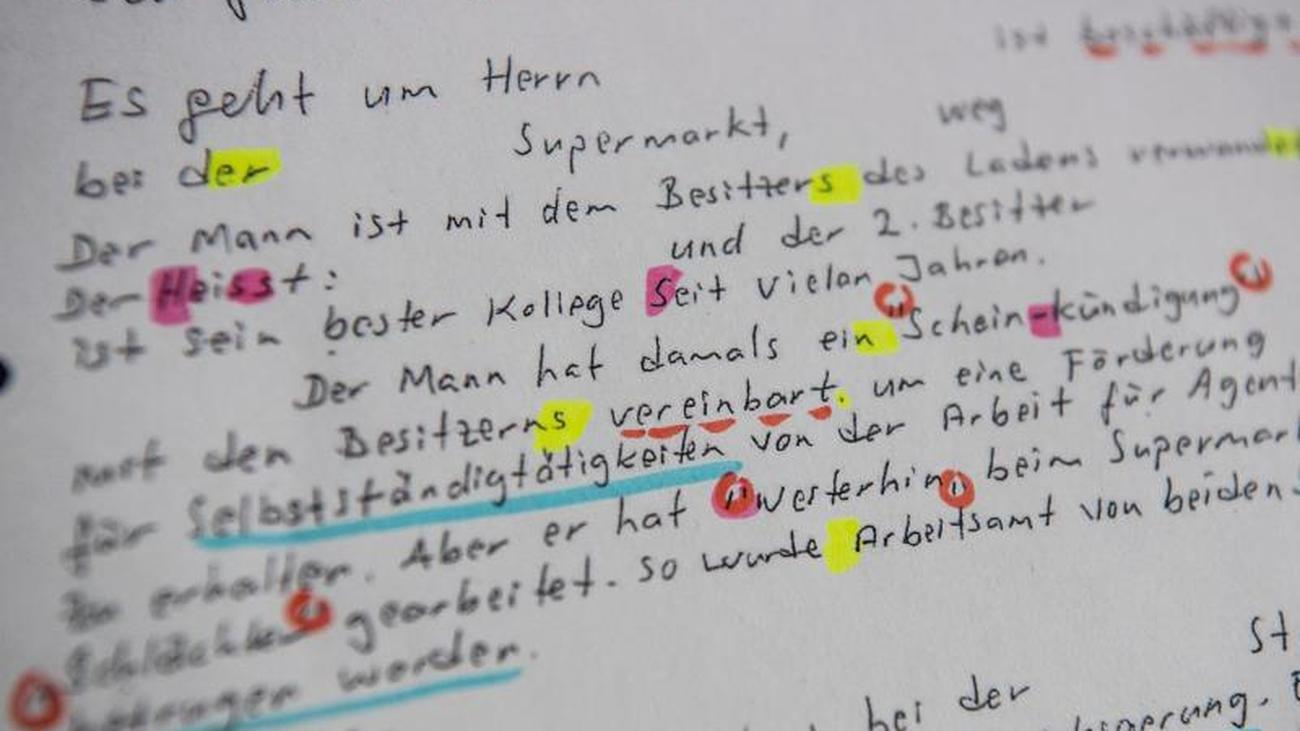 ist beschäftigt
Es geht um Herrn
bei der Supermarkt, weg
Der Mann ist mit dem Besitzers des Ladens verwandet
Der Heisst: und der 2. Besitter
ist sein bester Kollege Seit vielen Jahren.
Der Mann hat damals ein "Schein-kündigung"
mit den Besitzerns vereinbart. um eine Förderung
für Selbstständigtätigkeiten von der Arbeit für Agent
zu erhalten. Aber er hat "weiterhin" beim Supermar
gearbeitet. so wurde Arbeitsamt von beiden
betrogen worden.
St
bei der